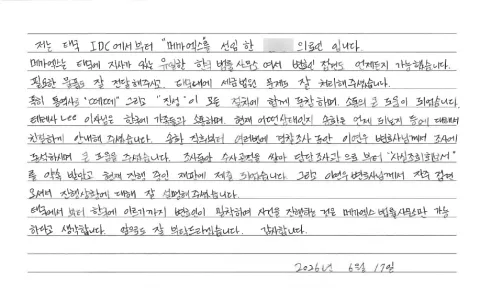 저는 태국 IDC에서부터 "메가엑스"를 선임한 의뢰인 입니다.
메가엑스는 태국에 지사가 있는 유일한 한국 법률사무소 여서 변호인 접견도 언제든지 가능했습니다.
필요한 물품도 잘 전달해주시고, 태국내에 세금법원 문제도 잘 처리해주셨습니다.
특히 통역사도 "떼떼" 그리고 "진성"이 모든 절차에 함께 포함하며, 소통의 큰 도움이 되었습니다.
Lee 이사님은 한국에 가족들과 소통하며, 현재 어떤상태인지 송환은 언제 되는지 등에 대해
친절하게 안내해 주셨습니다. 송환 직후부터 여러번에 경찰조사 또한 이연우 변호사님께서 조사에
도착하시며 큰 도움을 주셨습니다. 조사또한 수사과정을 쌓아 담당 조사관으로부터 "사실조회회신서"
를 약속 받았고 현재 진행 중인 재판에 제출 되었습니다. 그리고 이연우 변호사님께서 자주 접견
오셔서 진행상황에 대해 잘 설명해주셨습니다.
태국에서 부터 한국에 이르기까지 변호인이 밀착하여 사건을 진행하는 것은 메가엑스 법률사무소만 가능
하다고 생각합니다. 앞으로도 잘 부탁드리겠습니다. 감사합니다.
2026년 6월 17일